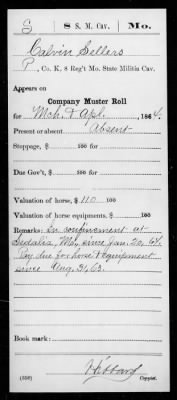 S 8 S. M. Cav. Mo.
Calvin Sellers
P, Co. K, 8 Reg't Mo. State Militia Cav.
Appears on
Company Muster Roll
for Mch. & Apl., 1864.
Present or absent Absent
Stoppage, $ 100 for
Due Gov't, $ 100 for
Valuation of horse, $ 110 100
Valuation of horse equipments, $ 100
Remarks: In confinement at
Sedalia, Mo, since Jan. 20, 64.
Pay due for horse & equipment
since Aug. 31, 63.
Book mark:
Hibbard
(358) Copyist.